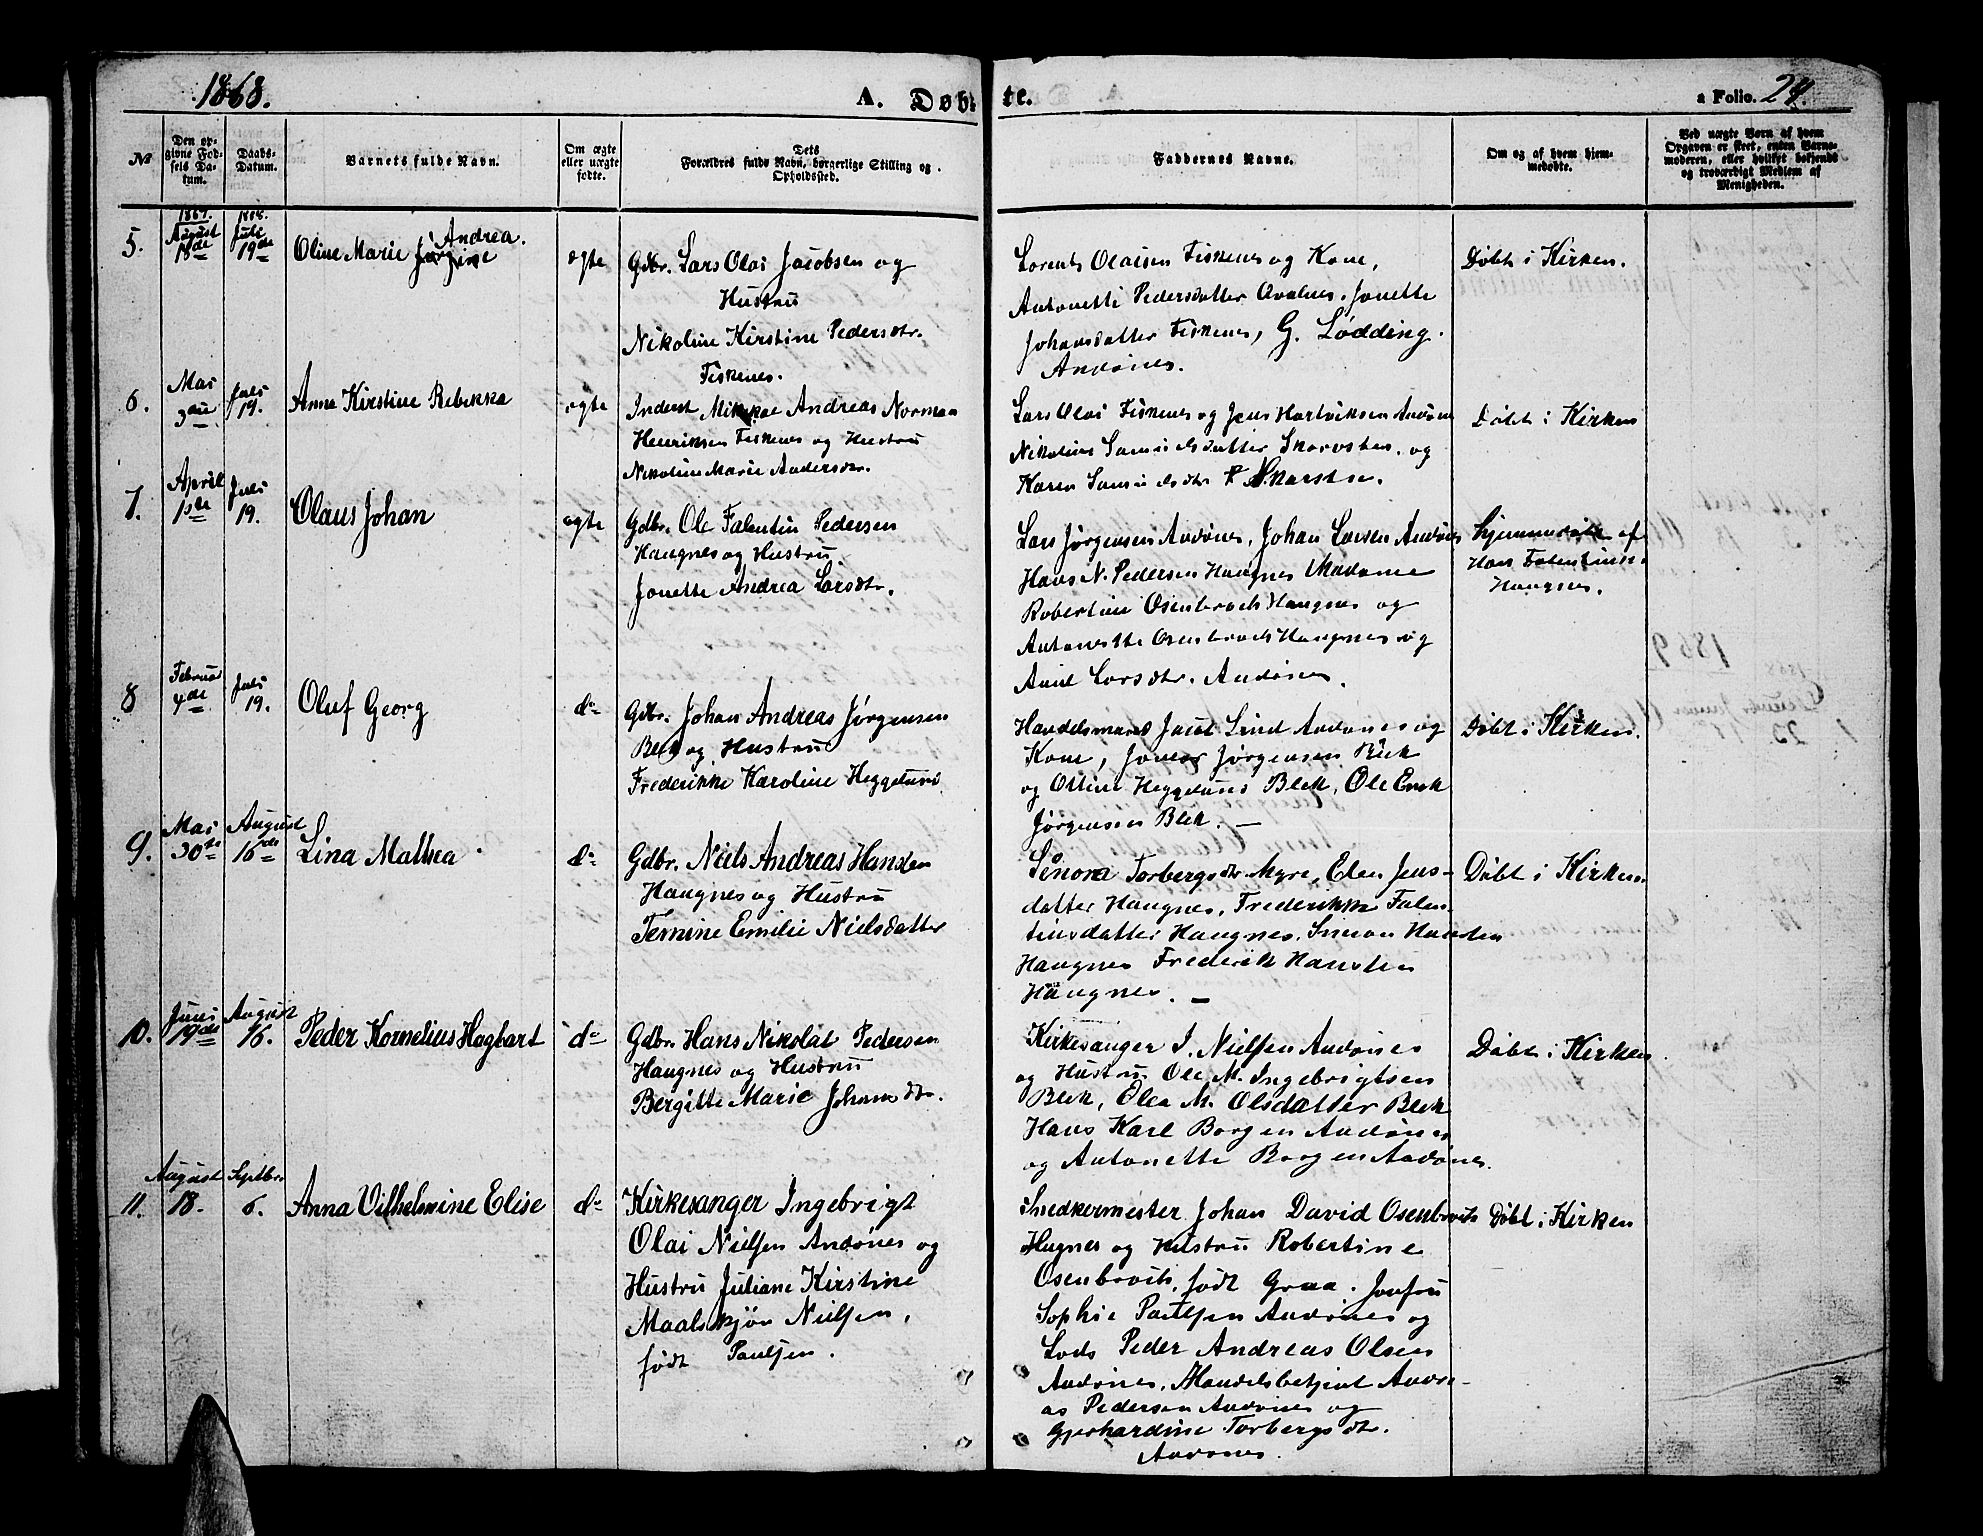 1868.
A. Døbte.
a Folio. 24.
№
Den opgivne Fødsels Datum.
Daabs-Datum.
Barnets fulde Navn.
Om ægte eller uægte fødte.
Dets Forældres fulde Navn, borgerlige Stilling og Opholdssted.
Faddernes Navne.
Om og af hvem hjemmedøbte.
Ved uægte Børn af hvem Opgaven er skeet, enten Barnemoderen, eller hvilket bekjendt og troværdigt Medlem af Menigheden.
5.
1867.
August
18de
1868.
Juli
19de
Oline Marie Jørgine Andrea.
ægte
Gdbr. Lars Olai Jacobsen og
Hustru
Nikoline Kirstine Pedersdtr.
Fiskenes.
Lorents Olaisen Fiskenes og Kone,
Antonette Pedersdatter Avalnes, Jonette
Johansdatter Fiskenes, G. Lødding.
Andønes.
Døbt i Kirken.
6.
Mai
3die
Juli
19.
Anne Kirstine Rebekka
ægte
Inderst Mikkael Andreas Norman
Henriksen Fiskenes og Hustru
Nikoline Marie Andersdtr.
Lars Olai Fiskenes og Jens Hartviksen Andønes
Nikoline Samuelsdatter Skarvsten, og
Karen Samuelsdtr
Døbt i Kirken
7.
April
1ste
Juli
19.
Olaus Johan
ægte
Gdbr. Ole Falentin Pedersen
Haugnes og Hustru
Jonette Andrea Larsdtr.
Lars Jørgensen Andønes, Johan Larsen Andønes
Hans N. Pedersen Haugnes Madame
Robertine Osenbroch Haugnes og
Antonette Osenbroch Haugnes og
Anne Larsdtr. Andønes.
Hjemmedøbt af
Hans Falentinsen
Haugnes.
8
Februar
4de
Juli
19.
Oluf Georg
do
Gdbr. Johan Andreas Jørgensen
Blek og Hustru
Frederikke Karoline Heggelund.
Handelsmand Jacob Lind Andønes og
Kone, Jonas Jørgensen Blek
og Ottine Heggelund Blek, Ole Enok
Jørgensen Blek. —
Døbt i Kirken.
9.
Mai
30te
August
16de
Lina Mathea
do
Gdbr. Niels Andreas Hansen
Haugnes og Hustru
Ternine Emilie Nielsdatter
Senora Torbergsdtr Myre, Elen Jens-
datter Haugnes, Frederikke Falen-
tinsdatter Haugnes, Simon Hansen
Haugnes Frederik Hansen
Haugnes. —
Døbt i Kirken.
10.
Juni
19de
August
16.
Peder Kornelius Hagbart
do
Gdbr. Hans Nikolai Pedersen
Haugnes og Hustru
Bergitte Marie Johansdtr.
Kirkesanger I. Nielsen Andønes
og Hustru Ole M. Ingebrigtsen
Blek, Olea M. Olsdatter Blek
Hans Karl Borgen Andønes
og Antonette Borgen Andønes.
Døbt i Kirken
11.
August
18.
Septbr.
6.
Anna Vilhelmine Elise
do
Kirkesanger Ingebrigt
Olai Nielsen Andønes og
Hustru Juliane Kirstine
Maalskjøn Nielsen,
født Paulsen.
Snedkermester Johan David Osenbroch
Hugnes og Hustru Robertine
Osenbroch, født Graa. Jomfru
Sophie Paulsen Andønes og
Lods Peder Andreas Olsen
Andønes, Handelsbetjent Andre-
as Pedersen Andønes og
Gjerhardine Torbergsdtr.
Andønes.
Døbt i Kirken